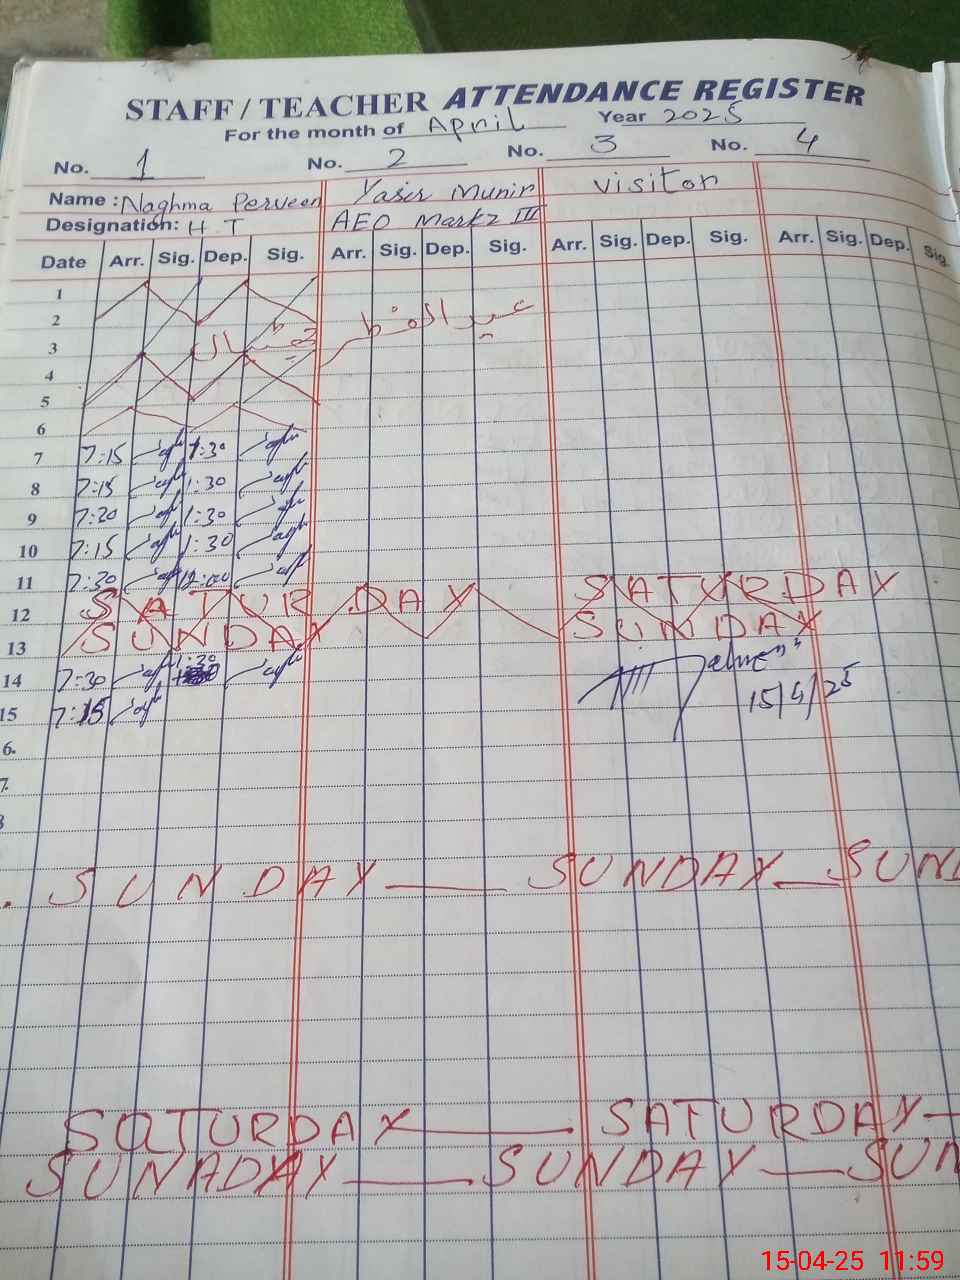 STAFF / TEACHER ATTENDANCE REGISTER
For the month of April Year 2025
No. 1 No. 2 No. 3 No. 4
Name : Naghma Perveen Yasir Munir visitor
Designation: H.T AEO Markz III
Date Arr. Sig. Dep. Sig. Arr. Sig. Dep. Sig. Arr. Sig. Dep. Sig. Arr. Sig. Dep. Sig.
1
2
عید الفطر
3
4
5
6
7 7:15 1:30
8 7:15 1:30
9 7:20 1:30
10 7:15 1:30
11 7:30 12:00
12 SATURDAY SATURDAY
13 SUNDAY SUNDAY
14 7:30 1:30
15 7:15 15/4/25
6.
7.
8
SUNDAY SUNDAY SUND
SATURDAY SATURDAY
SUNADAY SUNDAY SUN
15-04-25 11:59